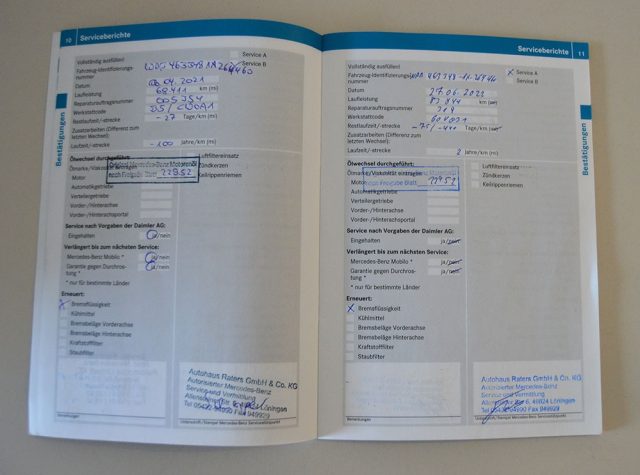 10 Serviceberichte
Service A
Service B
Vollständig ausfüllen!
Fahrzeug-Identifizierungs-
nummer
Datum 06.04.2021
Laufleistung 68.411 km (mi)
Reparaturauftragsnummer
Werkstattcode
Restlaufzeit/-strecke -27 Tage/km (mi)
Zusatzarbeiten (Differenz zum
letzten Wechsel):
Laufzeit/-strecke -100 Jahre/km (mi)
Ölwechsel durchgeführt:
Original Mercedes-Benz Motorenöl
nach Freigabe Blatt 229.52
Motor
Automatikgetriebe
Verteilergetriebe
Vorder-/Hinterachse
Vorder-/Hinterachsportal
Luftfiltereinsatz
Zündkerzen
Keilrippenriemen
Service nach Vorgaben der Daimler AG:
Eingehalten ja/nein
Verlängert bis zum nächsten Service:
Mercedes-Benz Mobilo * ja/nein
Garantie gegen Durchros-
tung * ja/nein
* nur für bestimmte Länder
Erneuert:
x Bremsflüssigkeit
Kühlmittel
Bremsbeläge Vorderachse
Bremsbeläge Hinterachse
Kraftstofffilter
Staubfilter
Autohaus Raters GmbH & Co. KG
Autorisierter Mercedes-Benz
Service und Vermittlung
Löningen
Fax 949929
Bemerkungen
Unterschrift/Stempel Mercedes-Benz Servicestützpunkt
Bestätigungen
Serviceberichte 11
x Service A
Service B
Vollständig ausfüllen!
Fahrzeug-Identifizierungs-
nummer
Datum
Laufleistung km (mi)
Reparaturauftragsnummer
Werkstattcode
Restlaufzeit/-strecke Tage/km (mi)
Zusatzarbeiten (Differenz zum
letzten Wechsel):
Laufzeit/-strecke 2 Jahre/km (mi)
Ölwechsel durchgeführt:
Ölmarke/Viskosität eintragen
Motor nach Freigabe Blatt 229.52
Automatikgetriebe
Verteilergetriebe
Vorder-/Hinterachse
Vorder-/Hinterachsportal
Luftfiltereinsatz
Zündkerzen
Keilrippenriemen
Service nach Vorgaben der Daimler AG:
Eingehalten ja/nein
Verlängert bis zum nächsten Service:
Mercedes-Benz Mobilo * ja/nein
Garantie gegen Durchros-
tung * ja/nein
* nur für bestimmte Länder
Erneuert:
x Bremsflüssigkeit
Kühlmittel
Bremsbeläge Vorderachse
Bremsbeläge Hinterachse
Kraftstofffilter
Staubfilter
Autohaus Raters GmbH & Co. KG
Autorisierter Mercedes-Benz
Service und Vermittlung
6, 49624 Löningen
Fax 949929
Bemerkungen
Unterschrift/Stempel Mercedes-Benz Servicestützpunkt
Bestätigungen